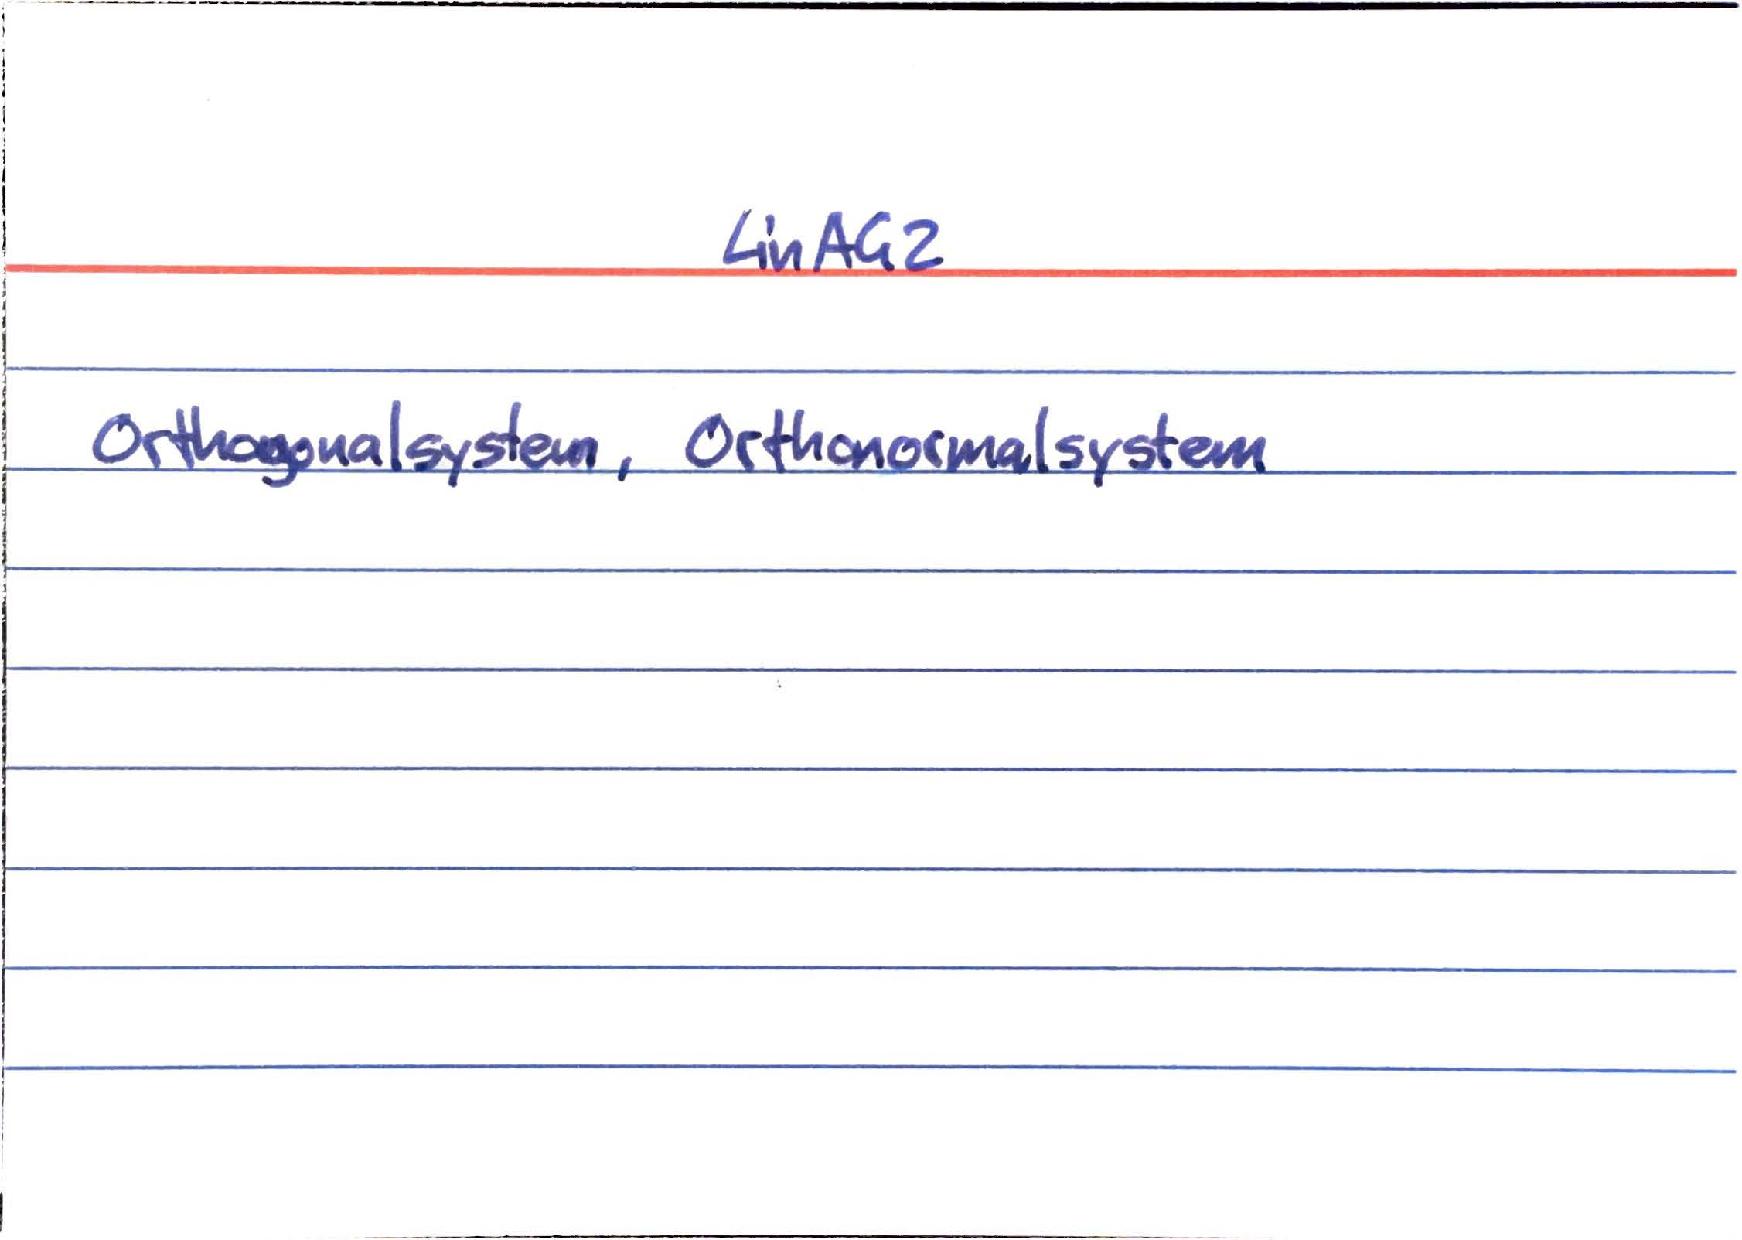 LinAG2
Orthogonalsystem, Orthonormalsystem